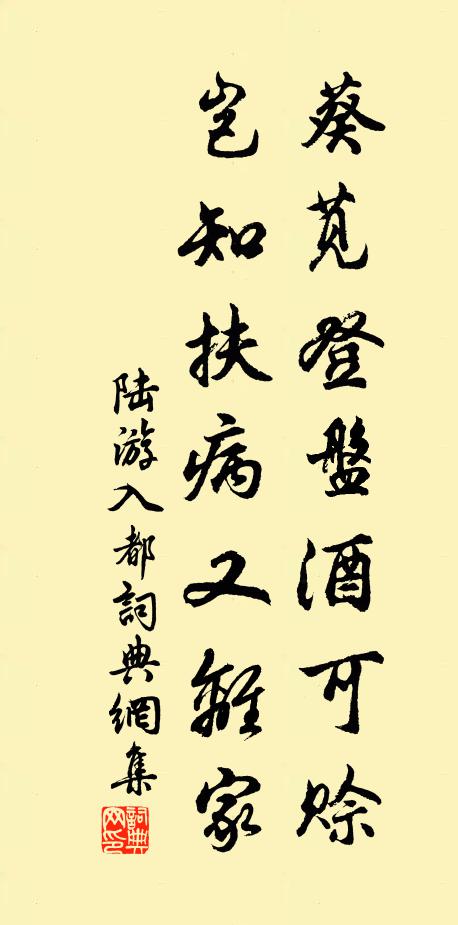 葵莧登盤酒可賒
豈知扶病又離家
陸游入都詞典網集
詞典网印